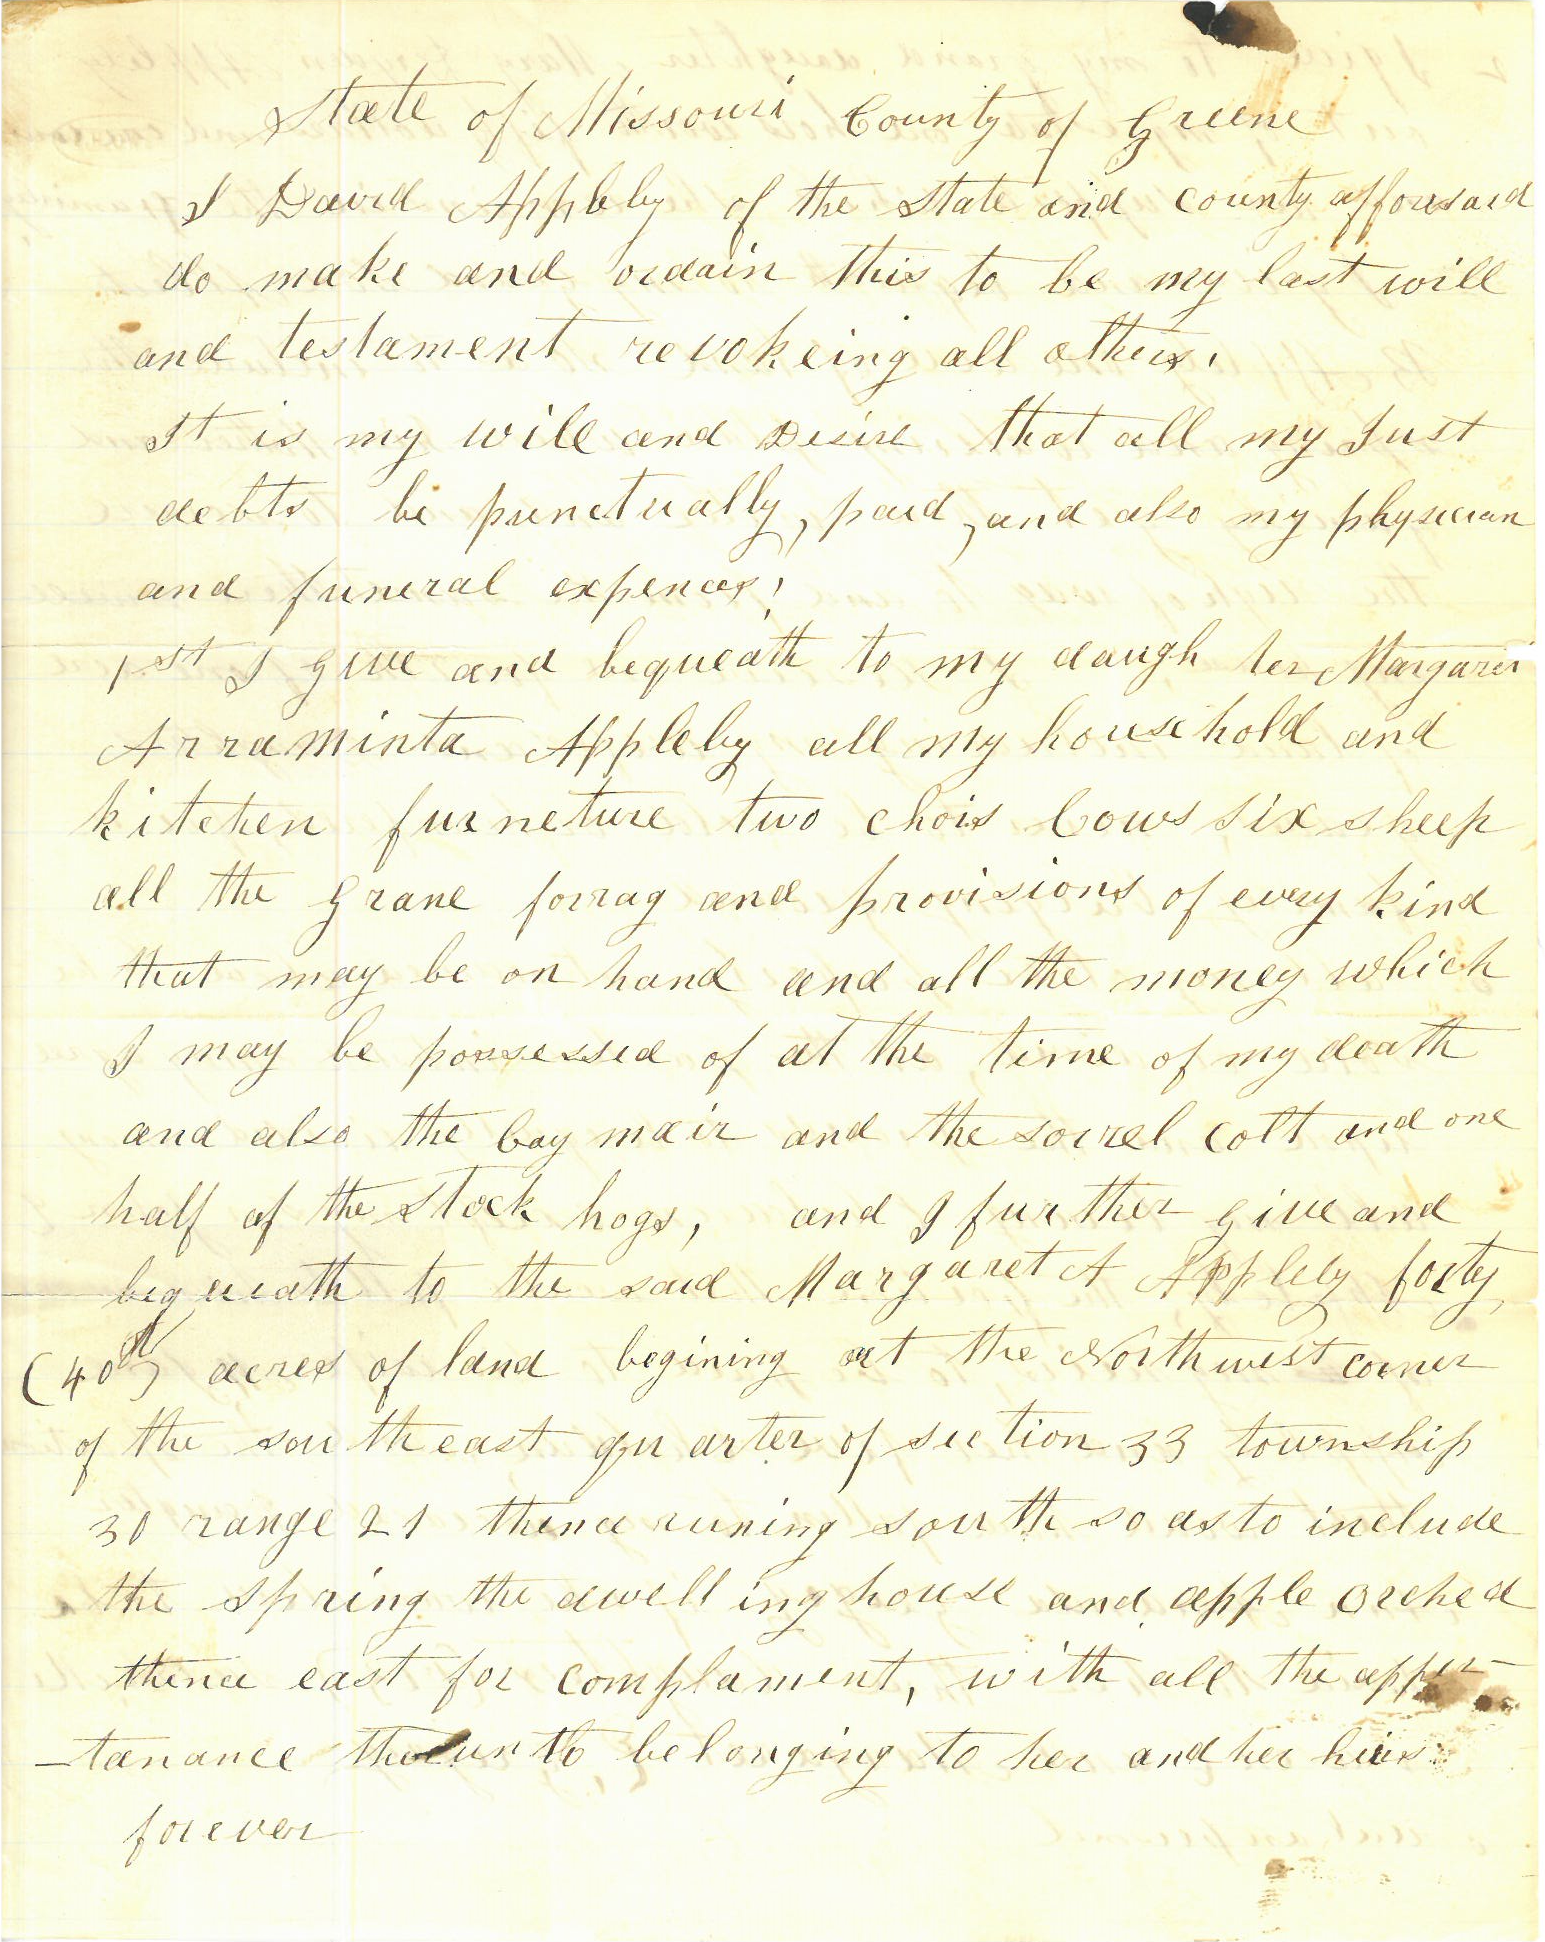 State of Missouri County of Greene
I David Appleby of the State and county afforesaid
do make and ordain this to be my last will
and testament revokeing all others.
It is my will and Desire that all my Just
debts be punctually, paid, and also my physician
and funeral expences,
1st I give and bequeath to my daugh ter Margaret
Arraminta Appleby all my household and
kitchen furneture two chois Cows six sheep
all the Grane forrag and provisions of every kind
that may be on hand and all the money which
I may be possessed of at the time of my death
and also the bay mair and the sorrel colt and one
half of the stock hogs, and I further give and
bequeath to the said Margaret A Appleby forty
(40) acres of land begining at the Northwest corner
of the southeast quarter of section 33 township
30 range 21 thence runing south so as to include
the spring the dwelling house and apple orched
thence east for complament, with all the apper-
-tanance thereunto belonging to her and her heirs
forever